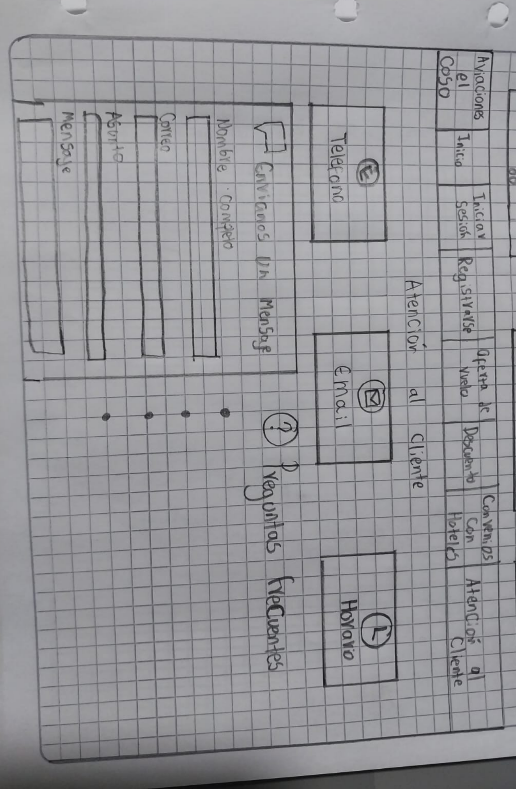 Aviaciones
el
Coso
Inicio
Iniciar
Sesión
Registrarse
Oferta de
Vuelo
Descuento
Convenios
Con
Hoteles
Atención al
Cliente
Atención al Cliente
Telefono
Email
Horario
Envianos un Mensaje
Nombre Completo
Correo
Asunto
Mensaje
? Preguntas frecuentes